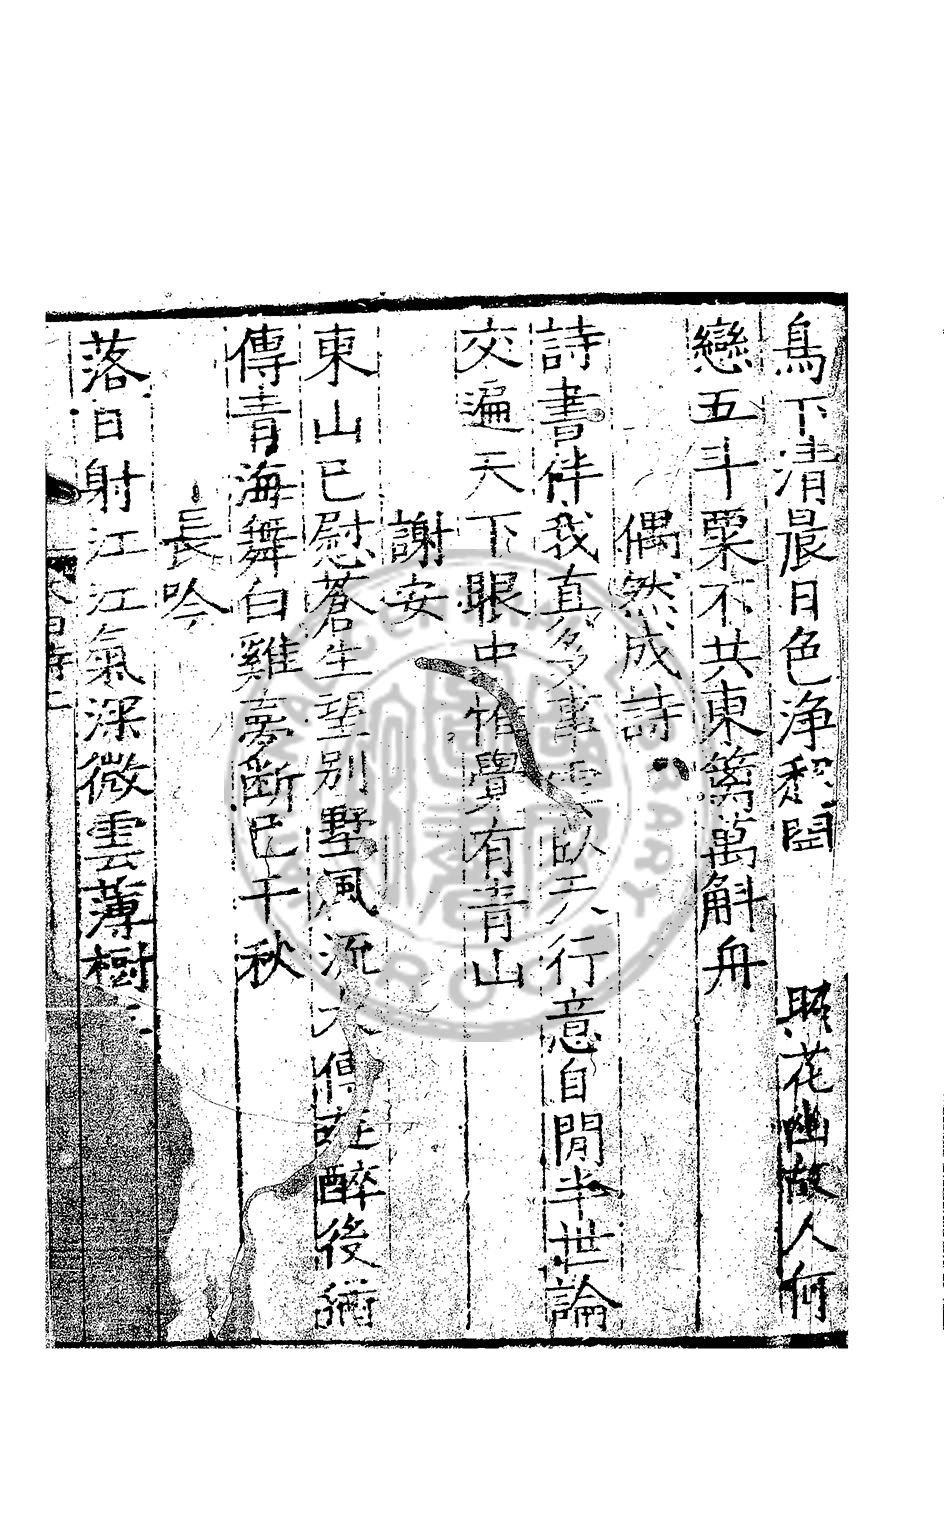 鳥下清晨日色浄稻閒 照花幽故人何
戀五斗粟不共東籬萬斛舟
偶然成詩
詩書伴我真多事雲臥天行意自閒半世論
交遍天下眼中惟覺有青山
謝安
東山已慰蒼生望別墅風流太傅在醉後
傳青海舞白雞夢斷已千秋
長吟
落日射江江氣深微雲薄樹